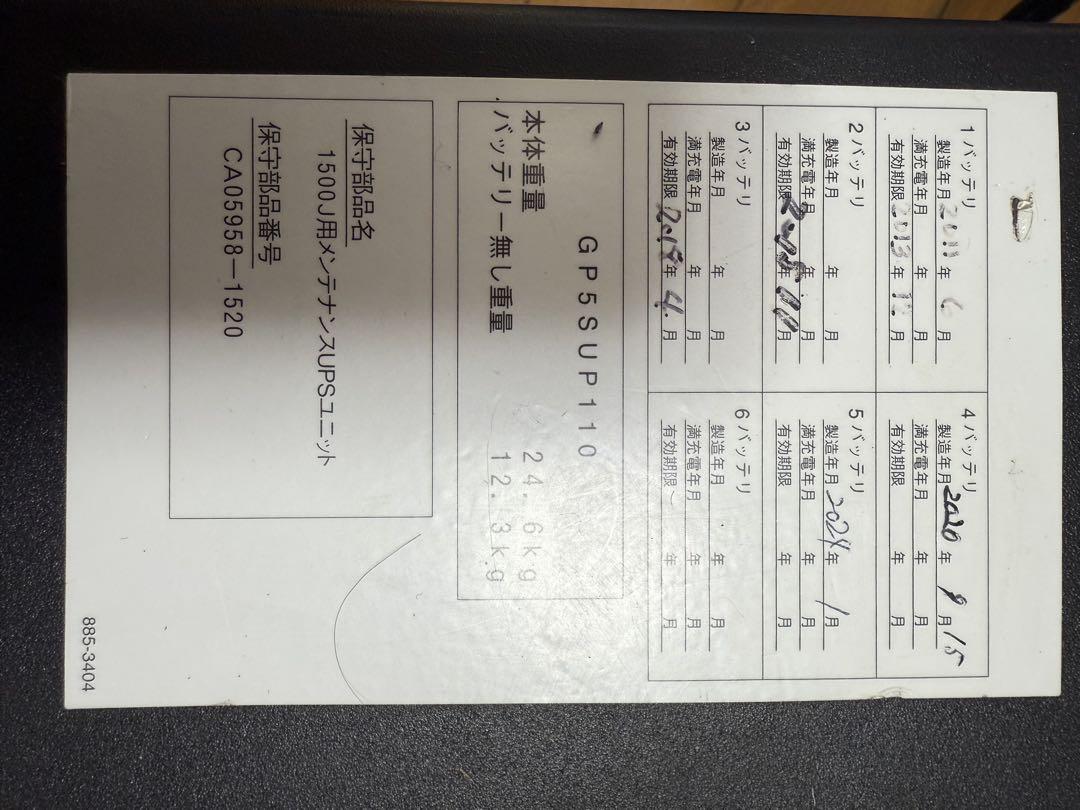 1バッテリ
製造年月 2011 年 6 月
満充電年月 年 月
有効期限 2013 年 12 月
2バッテリ
製造年月 年 月
満充電年月 年 月
有効期限 年 月
3バッテリ
製造年月 年 月
満充電年月 年 月
有効期限 年 4 月
4バッテリ
製造年月 2020 年 9 月 15
満充電年月 年 月
有効期限 年 月
5バッテリ
製造年月 2024 年 1 月
満充電年月 年 月
有効期限 年 月
6バッテリ
製造年月 年 月
満充電年月 年 月
有効期限 年 月
GP5SUP110
本体重量 24.6kg
バッテリー無し重量 12.3kg
保守部品名
1500J用メンテナンスUPSユニット
保守部品番号
CA05958-1520
885-3404